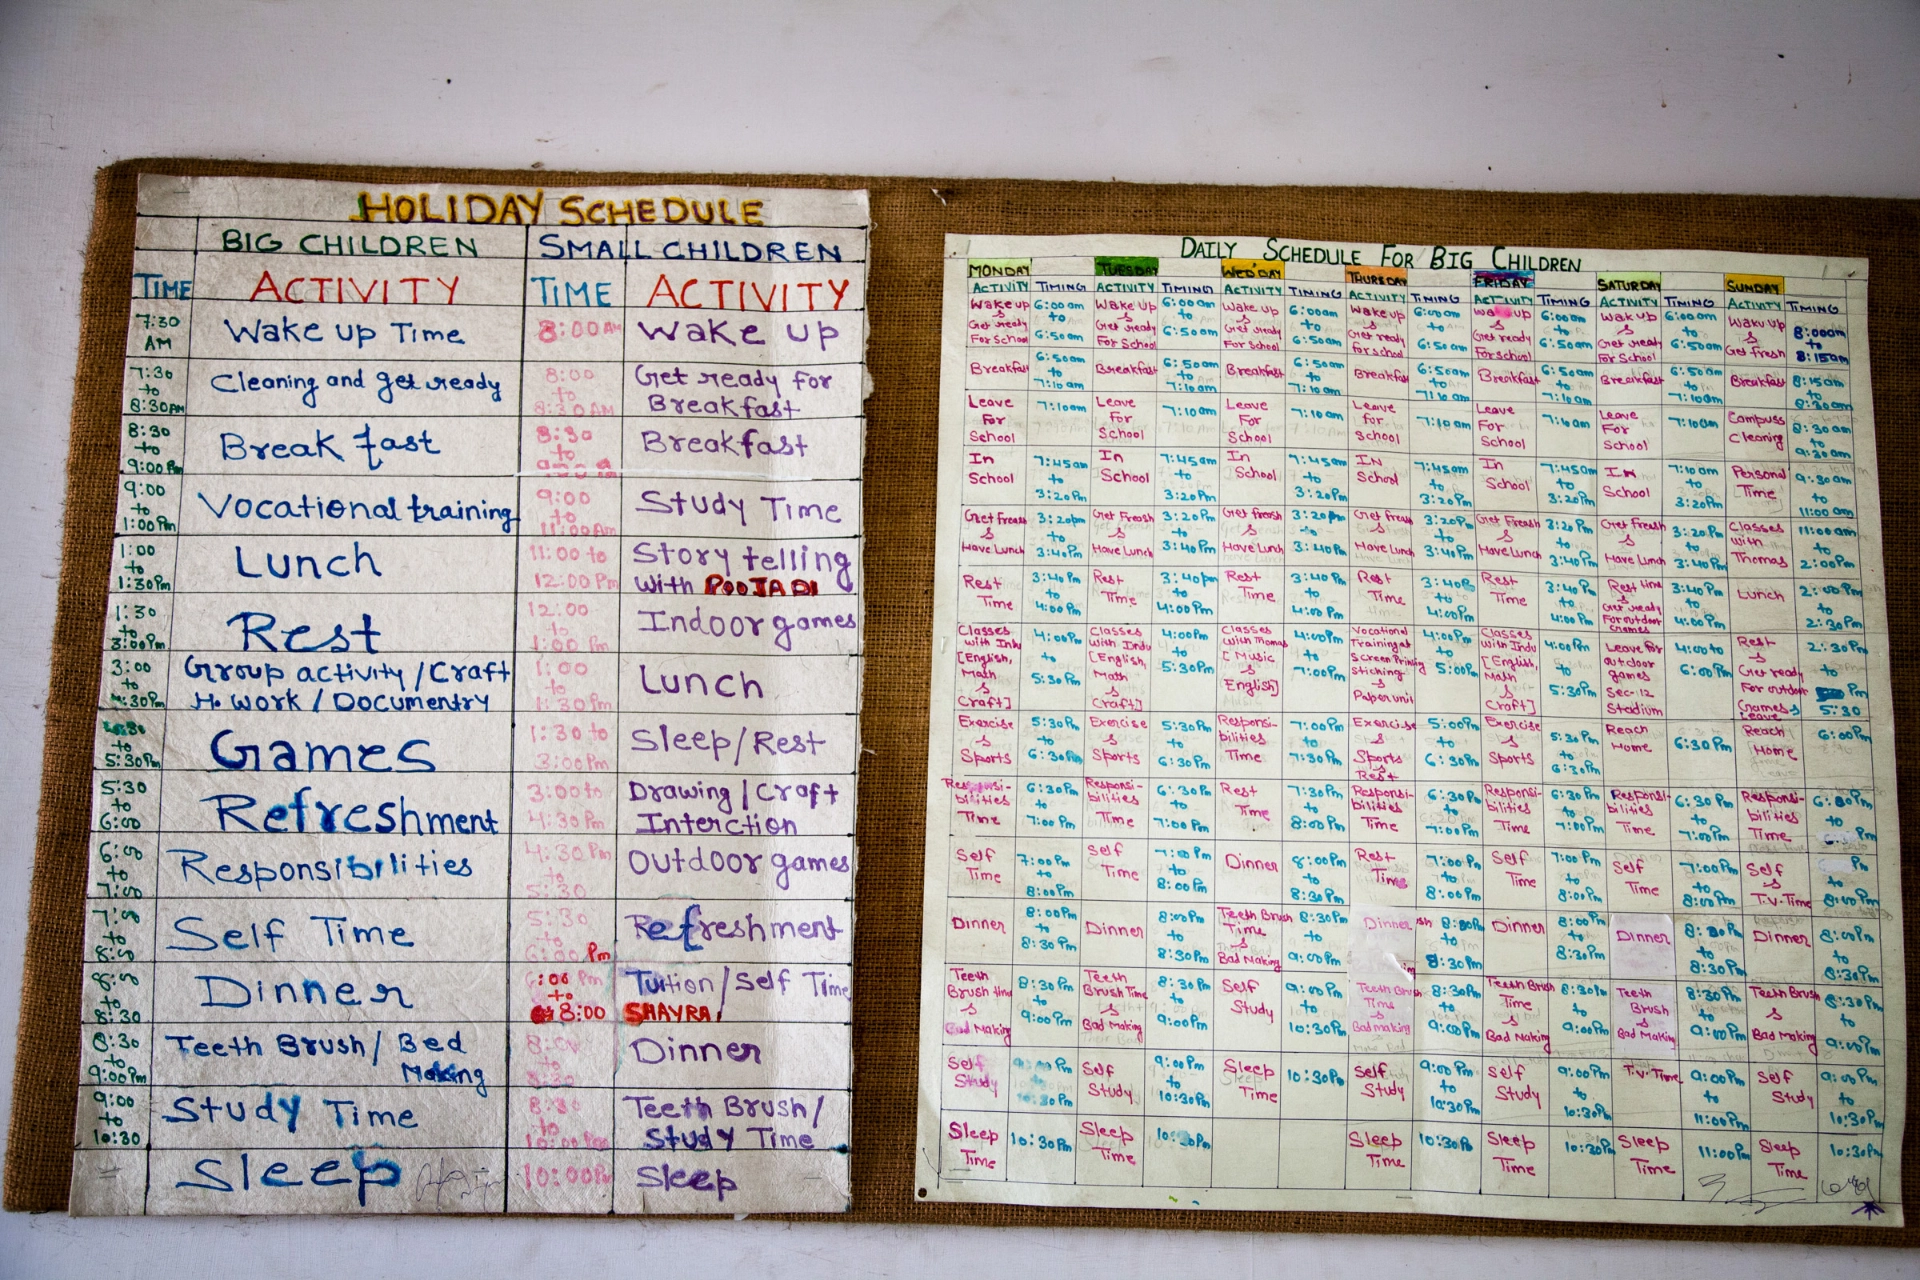 HOLIDAY SCHEDULE
BIG CHILDREN
SMALL CHILDREN
TIME ACTIVITY TIME ACTIVITY
7:30 AM Wake up Time 8:00 AM Wake up
7:30 to 8:30 AM Cleaning and get ready 8:00 to 8:30 AM Get ready for Breakfast
8:30 to 9:00 Pm Break fast 8:30 to Breakfast
9:00 to 1:00 Pm Vocational training 9:00 to 11:00 Am Study Time
1:00 to 1:30 Pm Lunch 11:00 to 12:00 Pm Story telling with POOJA DI
1:30 to 3:00 Pm Rest 12:00 to 1:00 Pm Indoor games
3:00 to 4:30 Pm Group activity / Craft H. work / Documentry 1:00 to 1:30 Pm Lunch
to 5:30 Pm Games 1:30 to 3:00 Pm Sleep/Rest
5:30 to 6:00 Refreshment 3:00 to 4:30 Pm Drawing / Craft Interction
6:00 to 7:00 Responsibilities 4:30 Pm to 5:30 Outdoor games
7:00 to 8:00 Self Time 5:30 to 6:00 Pm Refreshment
8:00 to 8:30 Dinner 6:00 Pm to 8:00 Tution / Self Time SHAYRA
8:30 to 9:00 Pm Teeth Brush / Bed Making 8:00 to 8:30 Dinner
9:00 to 10:30 Study Time 8:30 to 10:00 Pm Teeth Brush / Study Time
Sleep 10:00 Pm Sleep
DAILY SCHEDULE FOR BIG CHILDREN
MONDAY TUESDAY WED'DAY THURSDAY FRIDAY SATURDAY SUNDAY
ACTIVITY TIMING ACTIVITY TIMING ACTIVITY TIMING ACTIVITY TIMING ACTIVITY TIMING ACTIVITY TIMING ACTIVITY TIMING
Wake up & Get ready For School 6:00 am to 6:50 am Wake up & Get ready For School 6:00 am to 6:50 am Wake up & Get ready For School 6:00 am to 6:50 am Wake up & Get ready for school 6:00 am to 6:50 am Wake up & Get ready For school 6:00 am to 6:50 am Wak up & Get ready For School 6:00 am to 6:50 am Wake up & Get fresh 8:00 am to 8:15 am
Breakfast 6:50 am to 7:10 am Breakfast 6:50 am to 7:10 am Breakfast 6:50 am to 7:10 am Breakfast 6:50 am to 7:10 am Breakfast 6:50 am to 7:10 am Breakfast 6:50 am to 7:10 am Breakfast 8:15 am to 8:30 am
Leave For School 7:10 am Leave For School 7:10 am Leave For School 7:10 am Leave For School 7:10 am Leave For School 7:10 am Leave For School 7:10 am Campuss Cleaning 8:30 am to 9:30 am
In School 7:45 am to 3:20 Pm In School 7:45 am to 3:20 Pm In School 7:45 am to 3:20 Pm IN School 7:45 am to 3:20 Pm In School 7:45 am to 3:20 Pm In School 7:10 am to 3:20 Pm Personal Time 9:30 am to 11:00 am
Get Freash & Have Lunch 3:20 pm to 3:40 Pm Get Freash & Have Lunch 3:20 Pm to 3:40 Pm Get Freash & Have Lunch 3:20 Pm to 3:40 Pm Get Freash & Have Lunch 3:20 Pm to 3:40 Pm Get Freash & Have Lunch 3:20 Pm to 3:40 Pm Get Freash & Have Lunch 3:20 Pm to 3:40 Pm Classes with Thomas 11:00 am to 2:00 Pm
Rest Time 3:40 Pm to 4:00 Pm Rest Time 3:40 pm to 4:00 Pm Rest Time 3:40 Pm to 4:00 Pm Rest Time 3:40 Pm to 4:00 Pm Rest Time 3:40 Pm to 4:00 Pm Rest time & Get ready For outdoor Games 3:40 Pm to 4:00 Pm Lunch 2:00 Pm to 2:30 Pm
Classes with Indu [English, Math & Craft] 4:00 Pm to 5:30 Pm Classes with Indu [English, Math & Craft] 4:00 Pm to 5:30 Pm Classes with Thomas [Music & English] 4:00 Pm to 7:00 Pm Vocational Training at Screen Printing stiching & Paper unit 4:00 Pm to 5:00 Pm Classes with Indu [English, Math & Craft] 4:00 Pm to 5:30 Pm Leave for outdoor games Sec-12 Stadium 4:00 to 6:00 Pm Rest & Get ready For outdoor Games & Leave 2:30 Pm to 5:30
Exercise & Sports 5:30 Pm to 6:30 Pm Exercise & Sports 5:30 Pm to 6:30 Pm Responsibilities Time 7:00 Pm to 7:30 Pm Exercise & Sports & Rest 5:00 Pm to 6:30 Pm Exercise & Sports 5:30 Pm to 6:30 Pm Reach Home 6:30 Pm Reach Home 6:00 Pm
Responsi-bilities Time 6:30 Pm to 7:00 Pm Responsi-bilities Time 6:30 Pm to 7:00 Pm Rest Time 7:30 Pm to 8:00 Pm Responsi-bilities Time 6:30 Pm to 7:00 Pm Responsi-bilities Time 6:30 Pm to 7:00 Pm Responsi-bilities Time 6:30 Pm to 7:00 Pm Responsi-bilities Time 6:00 Pm to Pm
Self Time 7:00 Pm to 8:00 Pm Self Time 7:00 Pm to 8:00 Pm Dinner 8:00 Pm to 8:30 Pm Rest Time 7:00 Pm to 8:00 Pm Self Time 7:00 Pm to 8:00 Pm Self Time 7:00 Pm to 8:00 Pm Self & T.V. Time Pm to 8:00 Pm
Dinner 8:00 Pm to 8:30 Pm Dinner 8:00 Pm to 8:30 Pm Teeth Brush Time & Bad Making 8:30 Pm to 9:00 Pm Dinner 8:00 Pm to 8:30 Pm Dinner 8:00 Pm to 8:30 Pm Dinner 8:00 Pm to 8:30 Pm Dinner 8:00 Pm to 8:30 Pm
Teeth Brush time & Bad Making 8:30 Pm to 9:00 Pm Teeth Brush Time & Bad Making 8:30 Pm to 9:00 Pm Self Study 9:00 Pm to 10:30 Pm Teeth Brush Time & Bad making 8:30 Pm to 9:00 Pm Teeth Brush Time & Bad Making 8:30 Pm to 9:00 Pm Teeth Brush & Bad Making 8:30 Pm to 9:00 Pm Teeth Brush & Bad Making 8:30 Pm to 9:00 Pm
Self Study 9:00 Pm to 10:30 Pm Self Study 9:00 Pm to 10:30 Pm Sleep Time 10:30 Pm Self Study 9:00 Pm to 10:30 Pm Self Study 9:00 Pm to 10:30 Pm T.V. Time 9:00 Pm to 11:00 Pm Self Study 9:00 Pm to 10:30 Pm
Sleep Time 10:30 Pm Sleep Time 10:30 Pm Sleep Time 10:30 Pm Sleep Time 10:30 Pm Sleep Time 11:00 Pm Sleep Time 10:30 Pm